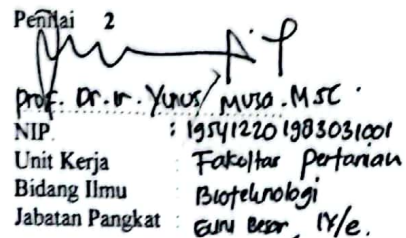 Penilai 2
Prof. Dr. Ir. Yunus Musa. MSC.
NIP : 195412201983031001
Unit Kerja : Fakultas Pertanian
Bidang Ilmu : Bioteknologi
Jabatan Pangkat : Guru Besar, IV/e.